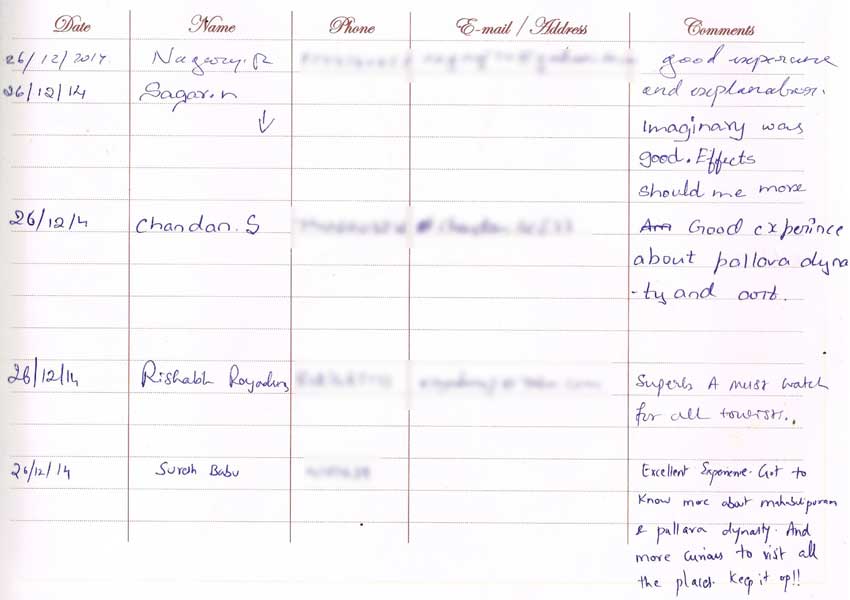 Date Name Phone E-mail / Address Comments
26/12/2014 Nagaory.R good experience
26/12/14 Sagar.n and explanation.
Imaginary was
good. Effects
should me more
26/12/14 Chandan.S Good experince
about pallava dyna
-ty and art.
26/12/14 Rishabh Superb A must watch
for all tourists..
26/12/14 Suresh Babu Excellent Experience. Got to
know more about mahabalipuram
& pallava dynasty. And
more curious to visit all
the places. Keep it up!!